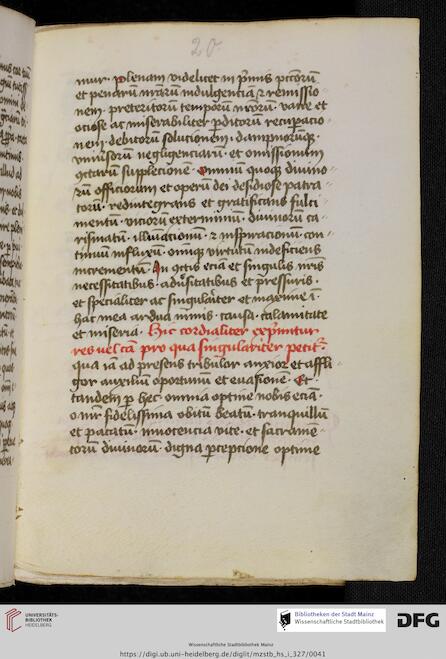 20
mur. plenam videlicet in p̃mis pct̃orũ
et penarũ nr̃arũ indulgenciã ⁊ remissio
nem. preteritorũ temporũ nr̃orũ. vane et
ociose ac miserabiliter ꝑditorũ recuperacio
nem. debitorũ solutionem. dampnorũqꝫ
negligenciarũ. et omissionum
supplecionẽ. omnium quoqꝫ divino
rũ officiorum et operũ dei desidiose patra
torũ. redintegrans et gratificans fulci
mentũ. viciorũ exterminiũ. divinorũ ca
rismatũ. illuĩacionũ. ⁊ inspiracionũ. con
tinuũ influxũ. omniqꝫ virtutũ indeficiens
incrementũ. In eciã et singulis nr̃is
necessitatibus. adũsitatibus et p̃ssuris.
et specialiter ac singulariter et maxime ĩ
hac mea ardua nimis. causa. calamitate
et miseria. Hic cordialiter exp̃mitur
res uel cã pro qua singulariter petit̃.
qua iã ad presens tribulor anxior et affli
gor auxiliũ oportunũ et euasionẽ. Et
tandem p̱ hec omnia optine nobis eciã.
o mr̃ fidelissima obitũ beatũ. tranquillũ
et pacatũ. innocencia vite. et sacramẽ
torũ divinorũ. digna ꝑcepcione optime
UNIVERSITÄTS-
BIBLIOTHEK
HEIDELBERG
Bibliotheken der Stadt Mainz
Wissenschaftliche Stadtbibliothek
DFG
Wissenschaftliche Stadtbibliothek Mainz
https://digi.ub.uni-heidelberg.de/diglit/mzstb_hs_i_327/0041